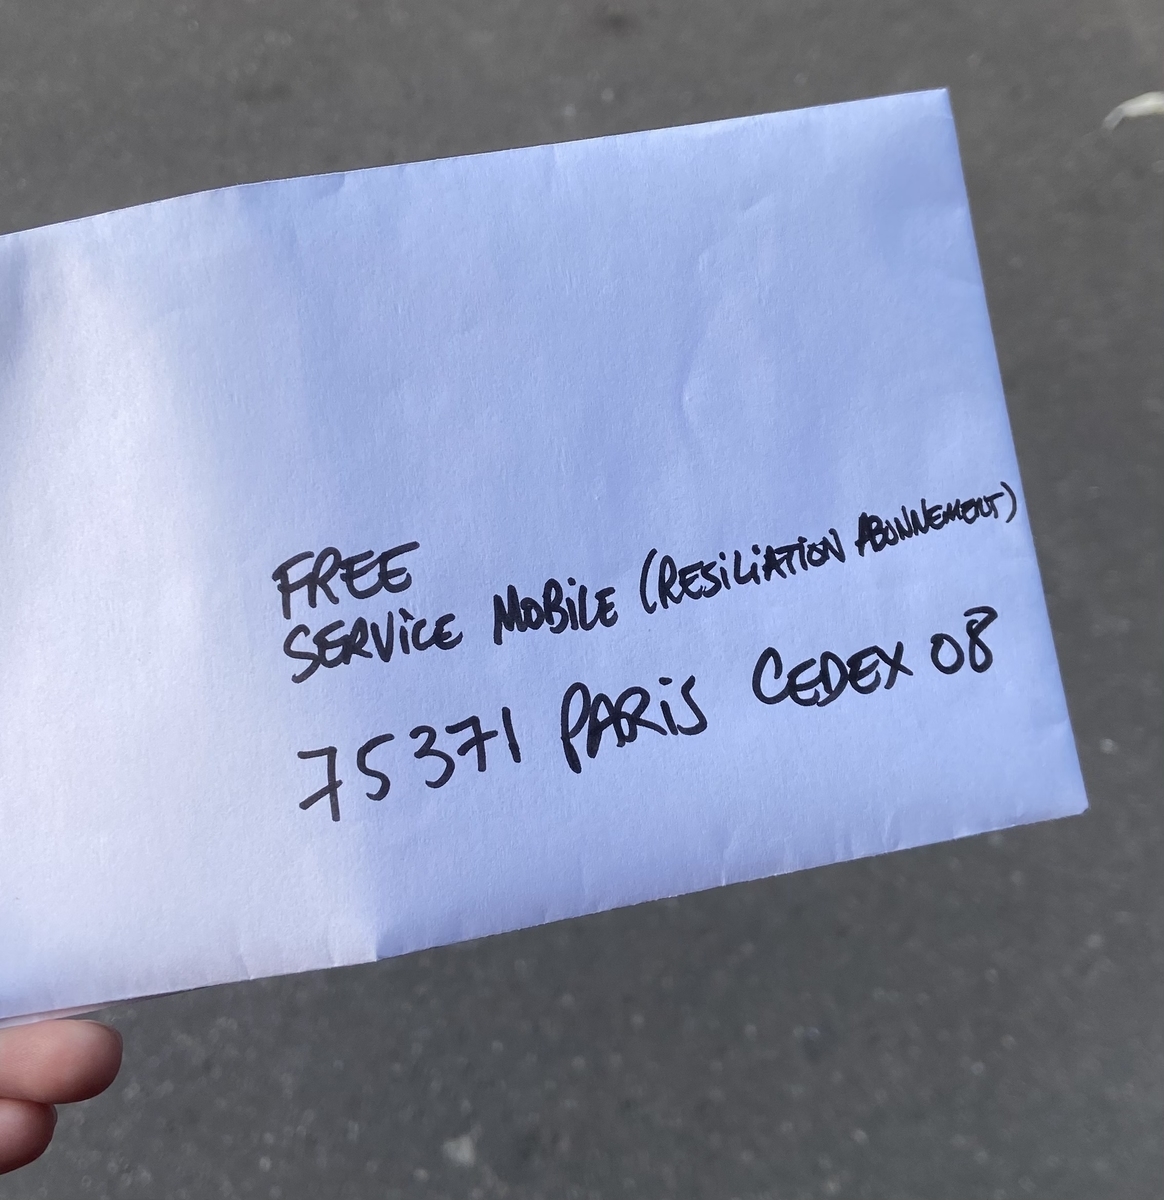 FREE
SERVICE MOBILE (RESILIATION ABONNEMENT)
75371 PARIS CEDEX 08